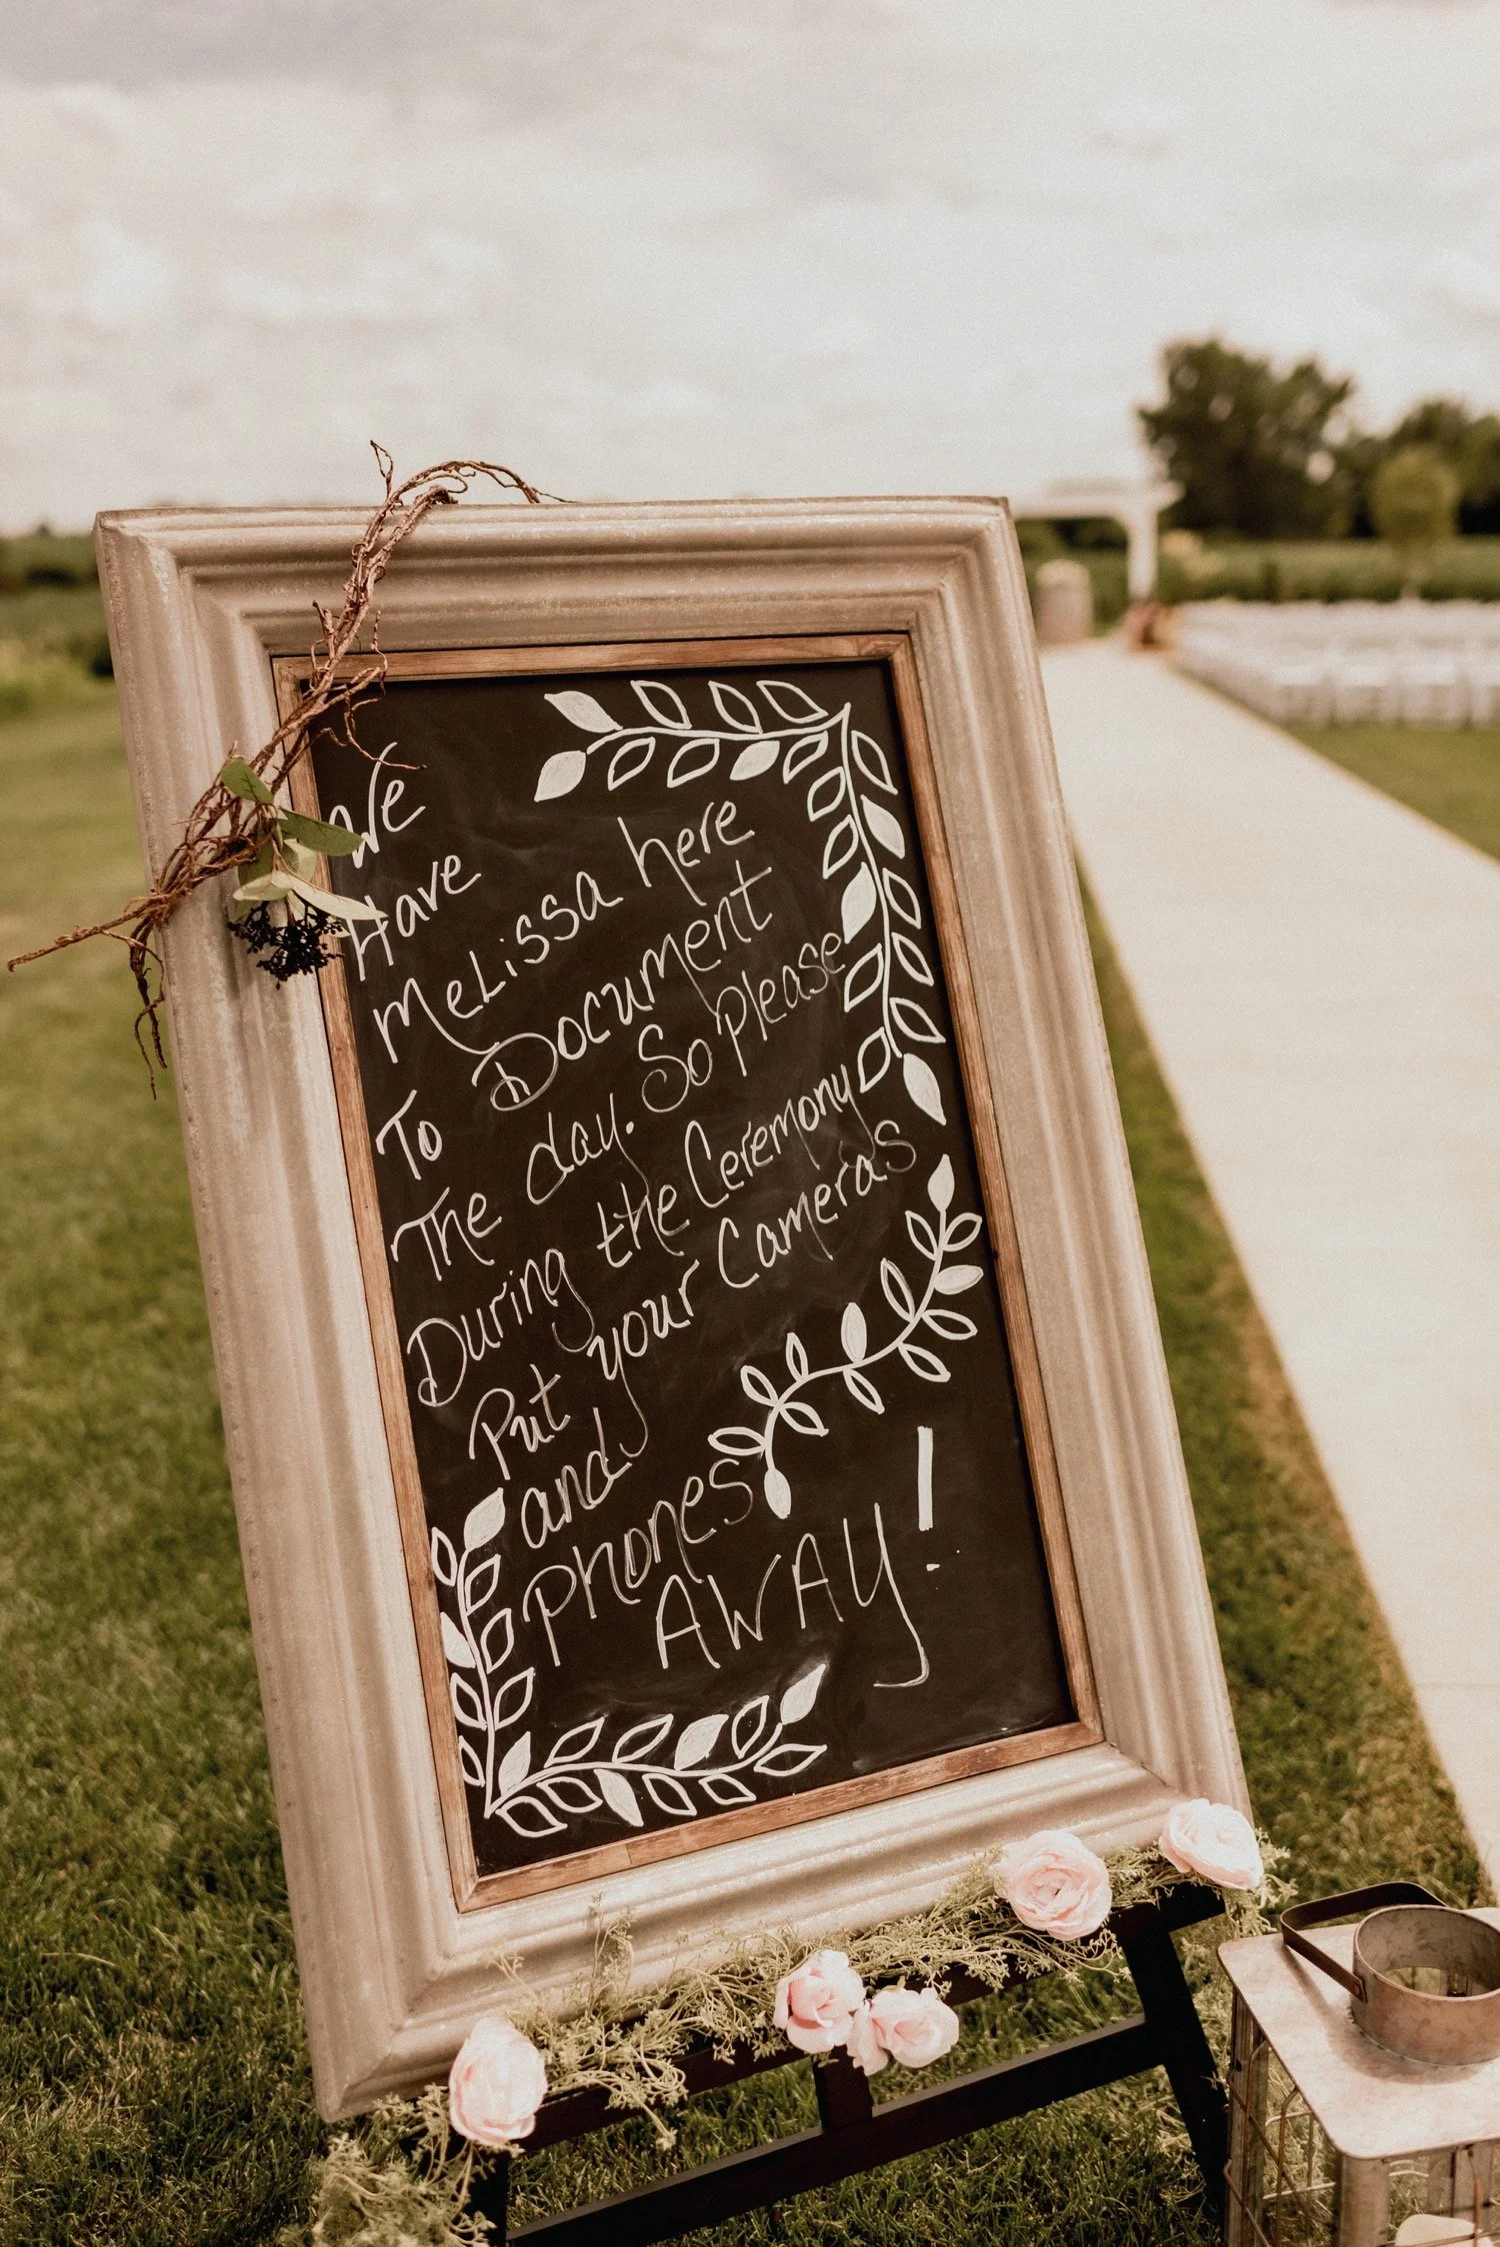 We
Have
MeLissa here
To Document
The day. So please
During the Ceremony
Put your Cameras
and
phones
AWAY!